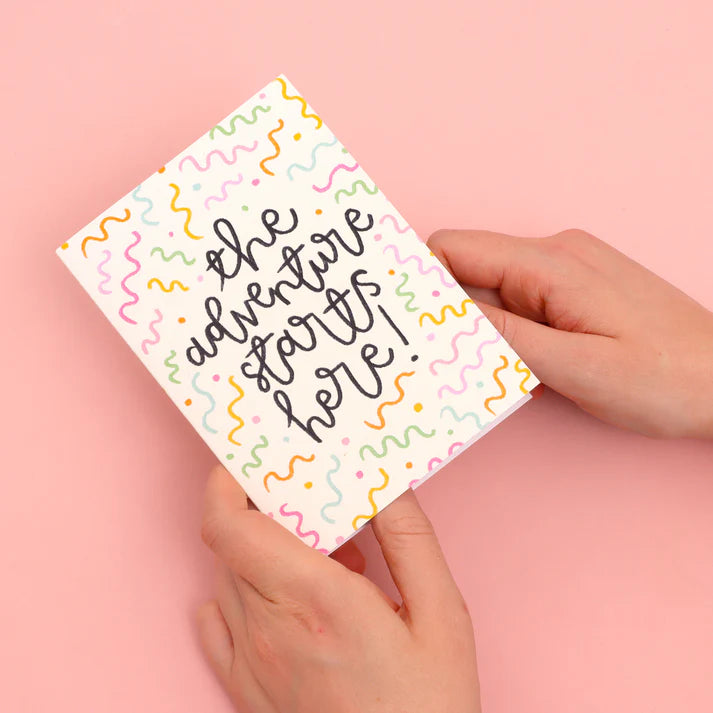 the
adventure
starts
here!